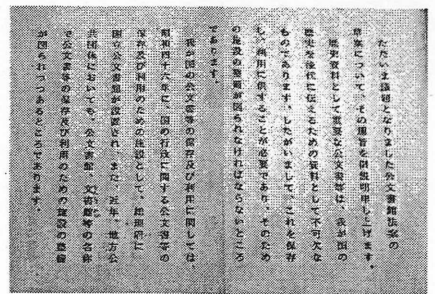 ただいま議題となりました公文書館法案の
草案について、その趣旨を御説明申し上げます。
歴史資料として重要な公文書等は、我が国の
歴史を後代に伝えるための資料として不可欠な
ものであります。したがいまして、これを保存
し、利用に供することが必要であり、そのため
の施設の整備が図られなければならないところ
であります。
我が国の公文書等の保存及び利用に関しては、
昭和四十六年に、国の行政に関する公文書等の
保存及び利用のための施設として、総理府に
国立公文書館が設置され、また、近年、地方公
共団体においても、公文書館、文書館等の名称
で公文書等の保存及び利用のための施設の整備
が図られつつあるところであります。